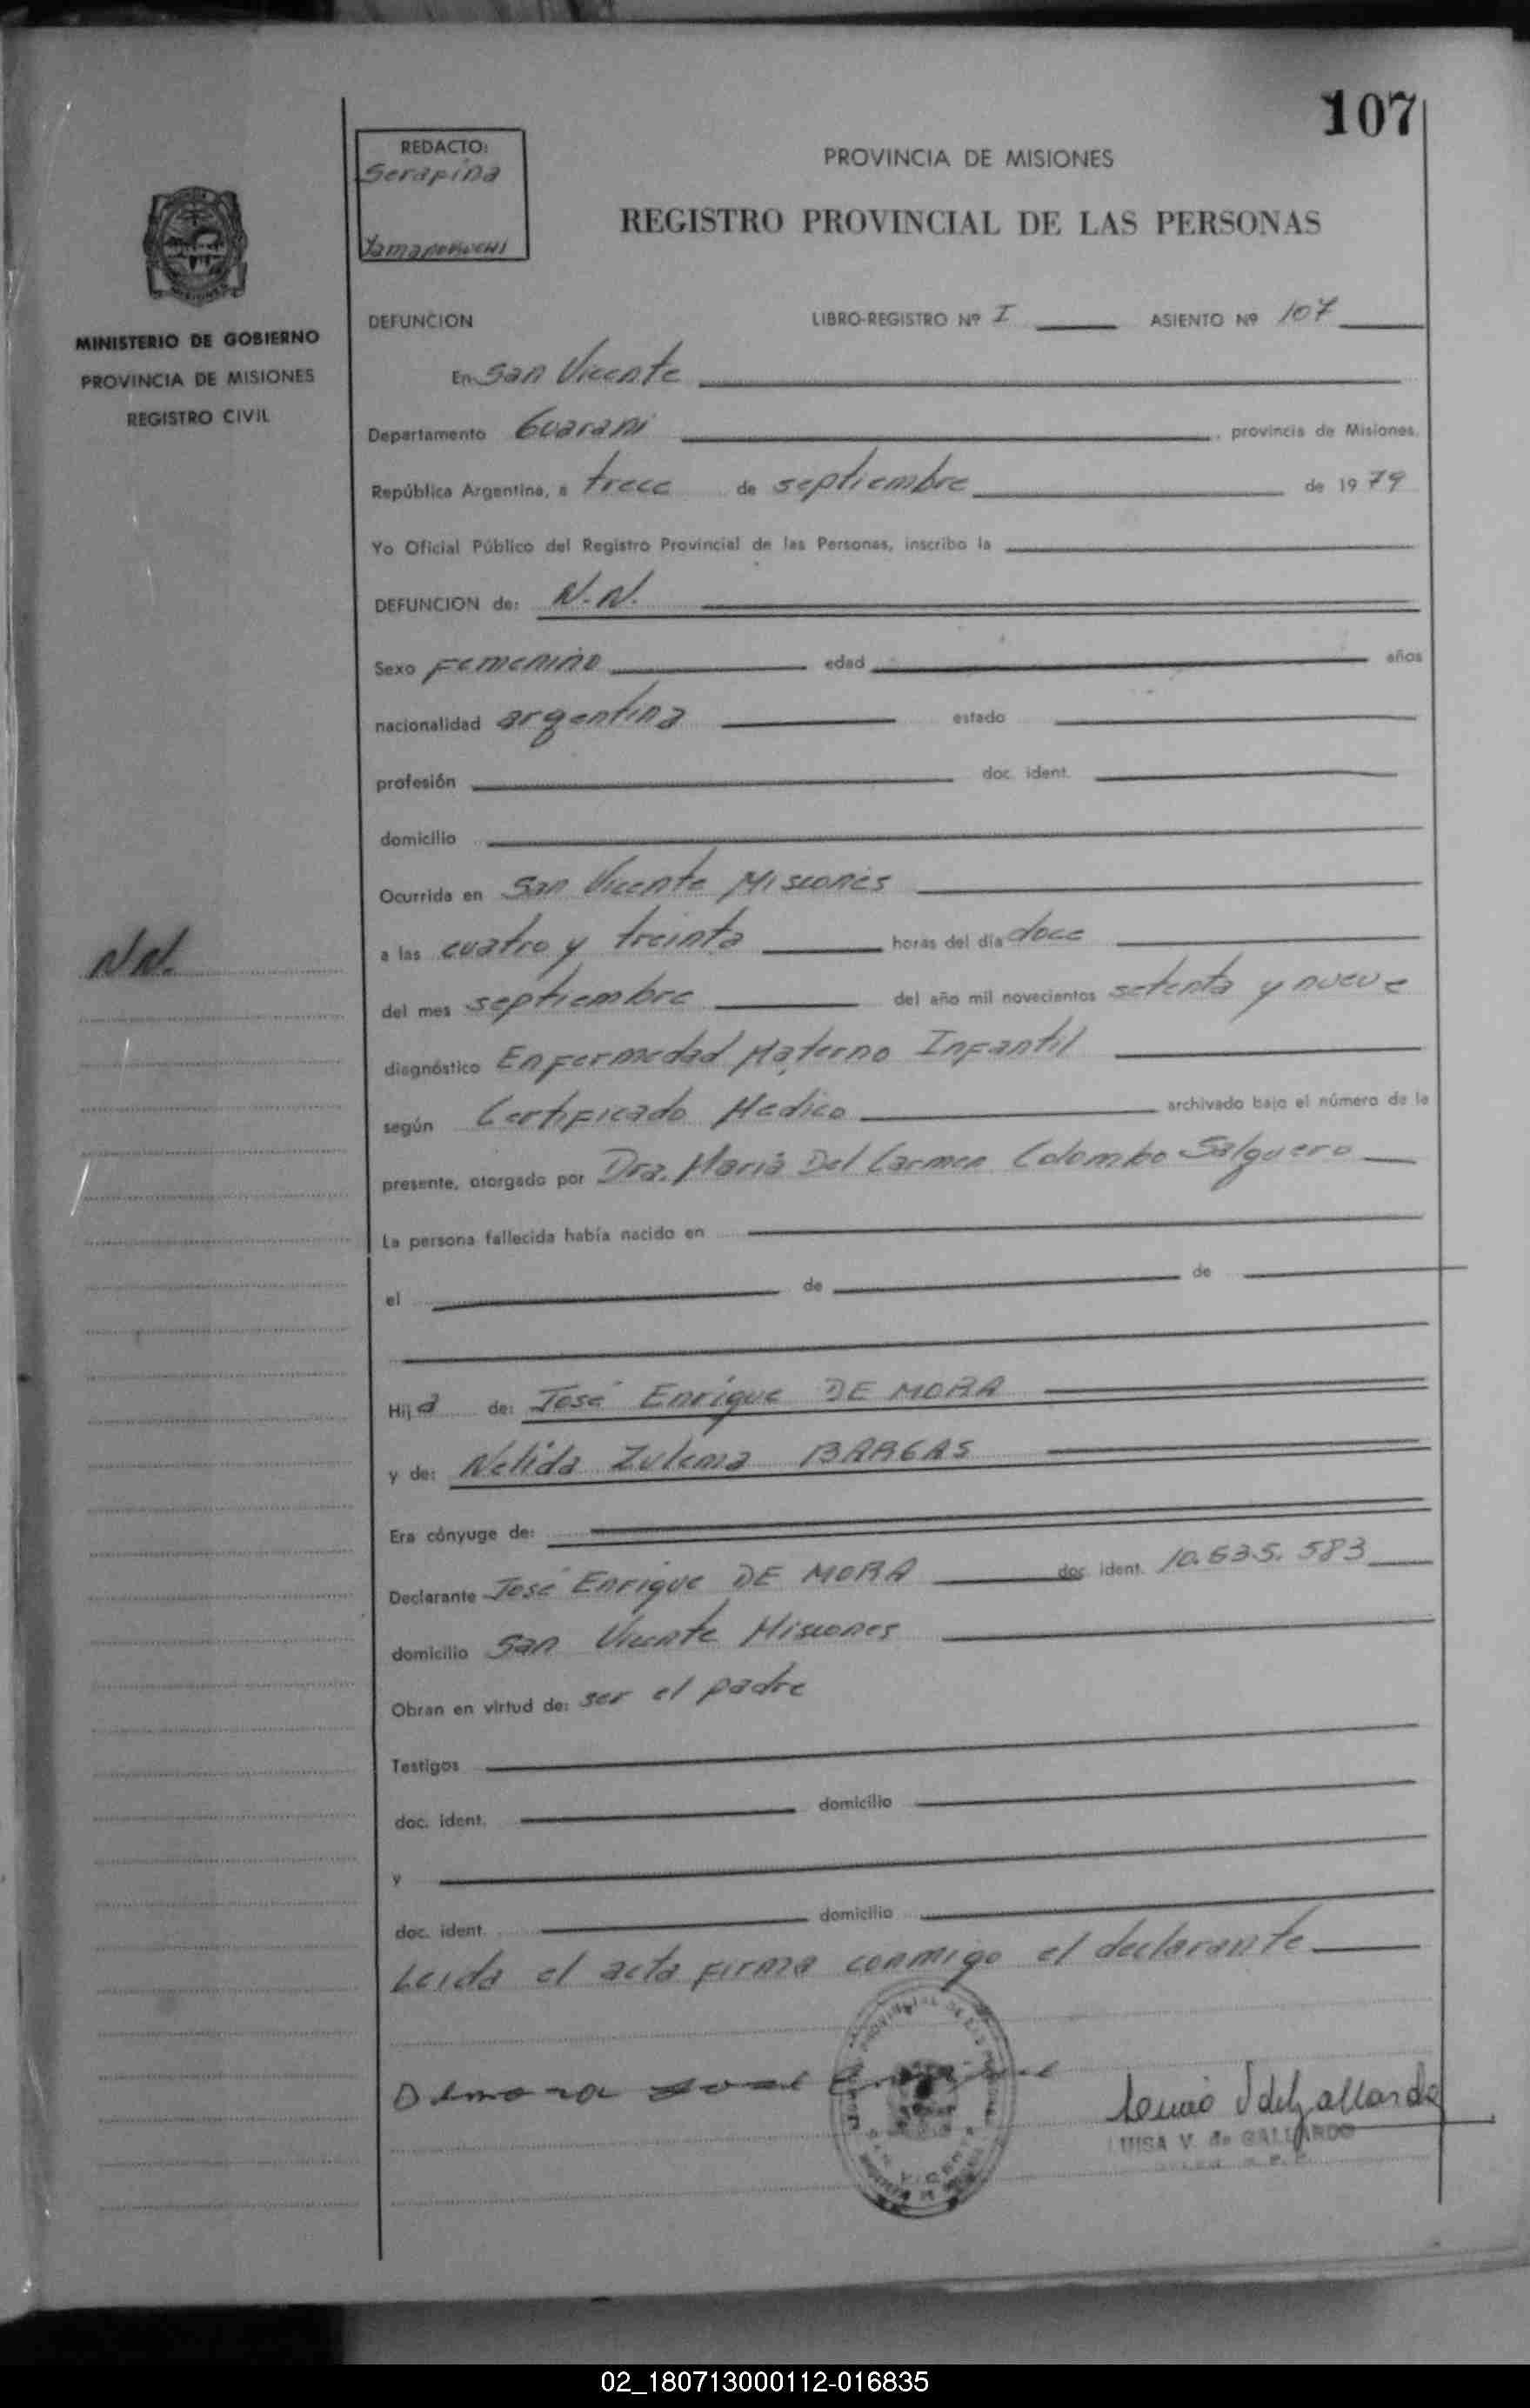 107
REDACTO:
Serafina
PROVINCIA DE MISIONES
REGISTRO PROVINCIAL DE LAS PERSONAS
MINISTERIO DE GOBIERNO
PROVINCIA DE MISIONES
REGISTRO CIVIL
DEFUNCION LIBRO-REGISTRO Nº I ASIENTO Nº 107
En San Vicente
Departamento Guarani, provincia de Misiones.
República Argentina, a trece de septiembre de 1979
Yo Oficial Público del Registro Provincial de las Personas, inscribo la
DEFUNCION de: N.N.
Sexo Femenino edad años
nacionalidad argentina estado
profesión doc. ident.
domicilio
Ocurrida en San Vicente Misiones
N.N.
a las cuatro y treinta horas del día doce
del mes septiembre del año mil novecientos setenta y nueve
diagnóstico Enfermedad Materno Infantil
según Certificado Medico archivado bajo el número de la
presente, otorgado por Dra. Maria Del Carmen Colombo Salguero
La persona fallecida había nacido en
el de de
Hija de: José Enrique DE MORA
y de: Nelida Zulema BARGAS
Era cónyuge de:
Declarante José Enrique DE MORA doc. ident. 10.635.583
domicilio San Vicente Misiones
Obran en virtud de: ser el padre
Testigos
doc. ident. domicilio
y
doc. ident. domicilio
Leida el acta firma conmigo el declarante
LUISA V. de GALLARDO
02_180713000112-016835